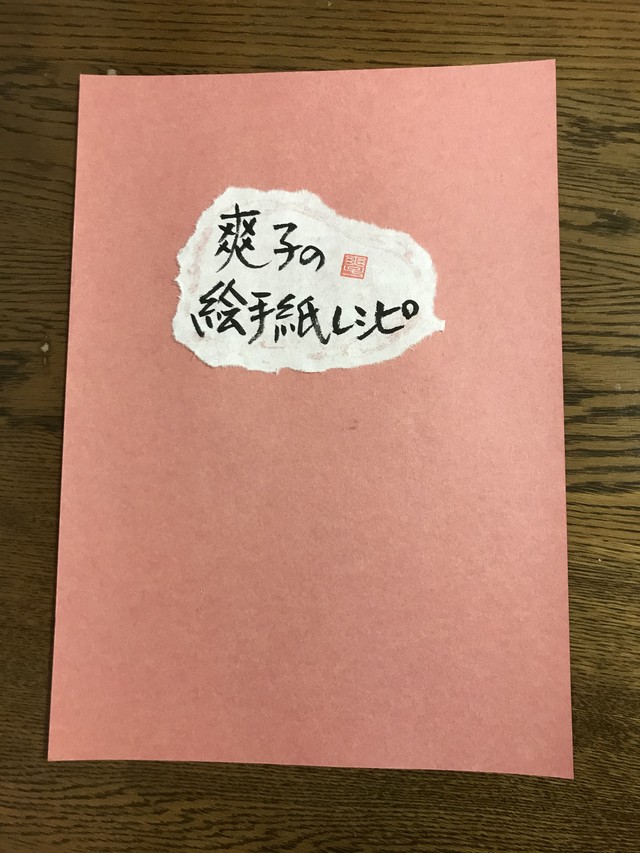 爽子の
絵手紙レシピ